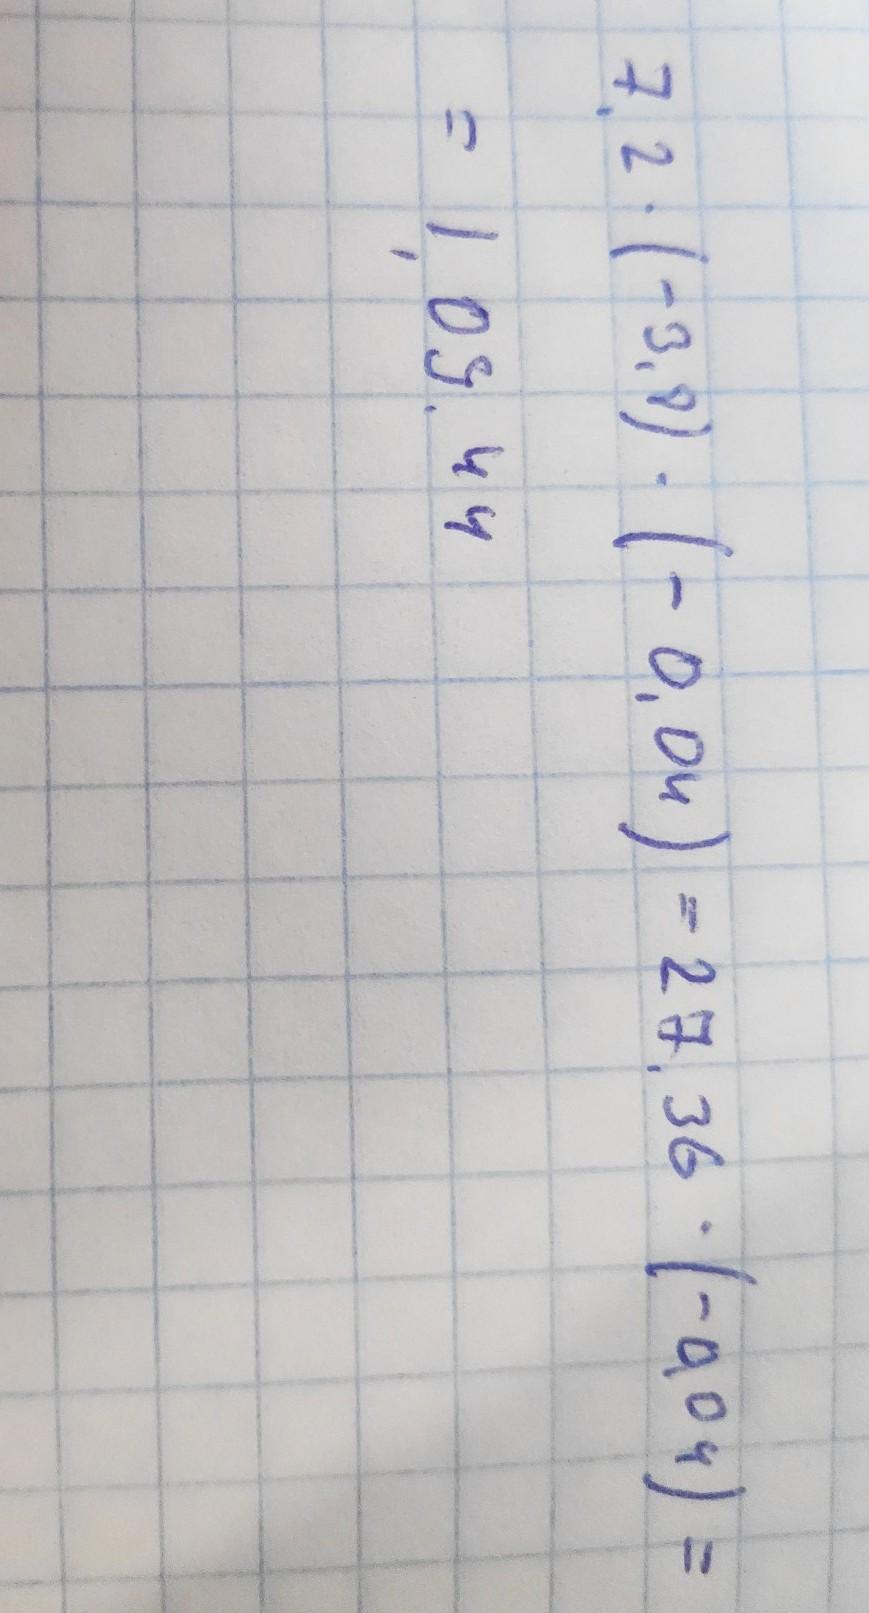 7,2 · (-3,8) · (-0,04) = 27,36 · (-0,04) =
= 1,09.44